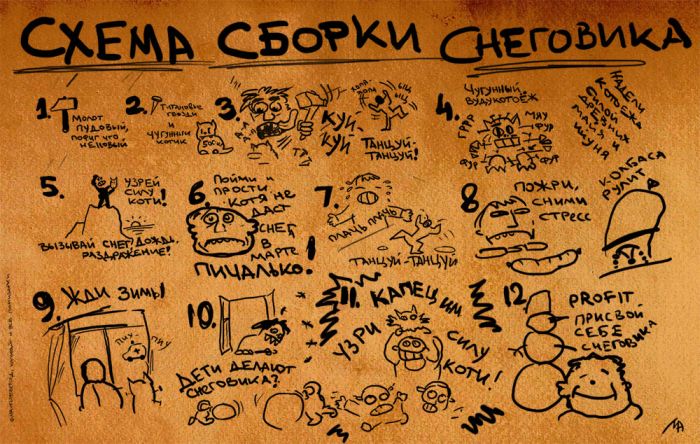 СХЕМА СБОРКИ СНЕГОВИКА
1.
МОЛОТ
ПУДОВЫЙ,
ПОФИГ ЧТО
НЕ НОВЫЙ
2.
ТИТАНОВЫЕ
ГВОЗДИ
И
ЧУГУННЫЙ
КОТИК
3.
КУЙ
КУЙ
ТАНЦУЙ-
ТАНЦУЙ!
4.
ЧУГУННЫЙ
ВУДУКОТОЁЖ
МЯУ
ФУР
5.
УЗРЕЙ
СИЛУ
КОТИ!
ВЫЗЫВАЙ СНЕГ, ДОЖДЬ,
РАЗДРАЖЕНИЕ?
6.
ПОЙМИ И
ПРОСТИ
КОТЯ НЕ
ДАСТ
СНЕГ
В
МАРТЕ
ПИЧАЛЬКО!
7.
ПЛАЧЬ ПЛАЧЬ
ТАНЦУЙ-ТАНЦУЙ
8.
ПОЖРИ,
СНИМИ
СТРЕСС
КОЛБАСА
РУЛИТ
9. ЖДИ ЗИМЫ
ПИУ-
ПИУ
10.
ДЕТИ ДЕЛАЮТ
СНЕГОВИКА?
11. КАПЕЦ ИМ
УЗРИ
СИЛУ
КОТИ!
12.
PROFIT.
ПРИСВОЙ
СЕБЕ
СНЕГОВИКА